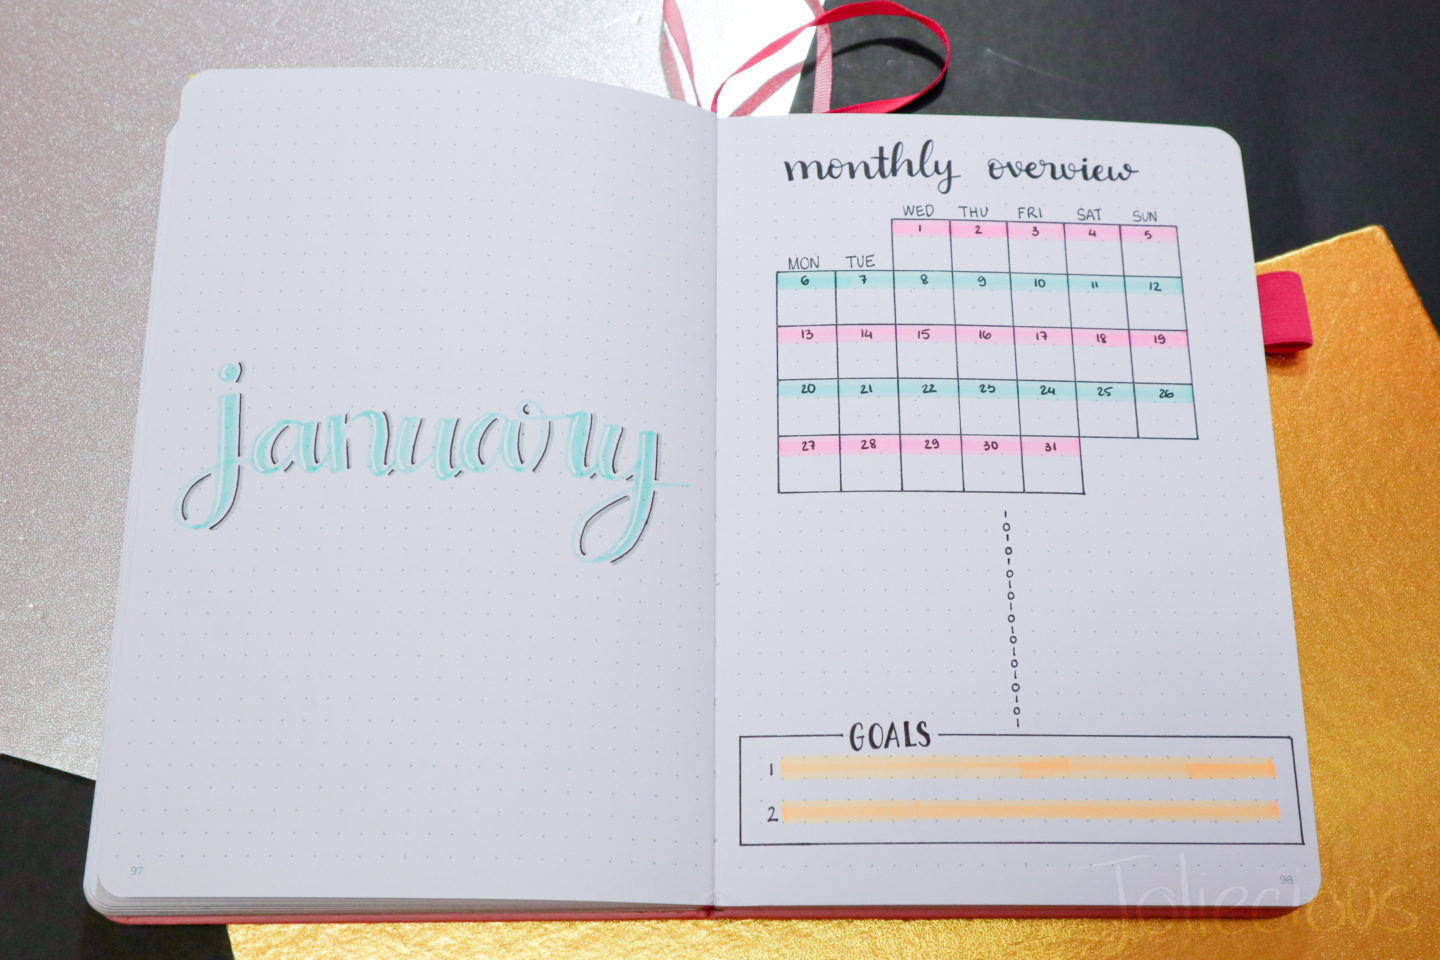 january
97
monthly overview
WED THU FRI SAT SUN
1 2 3 4 5
MON TUE
6 7 8 9 10 11 12
13 14 15 16 17 18 19
20 21 22 23 24 25 26
27 28 29 30 31
GOALS
1
2
98
Joliecious